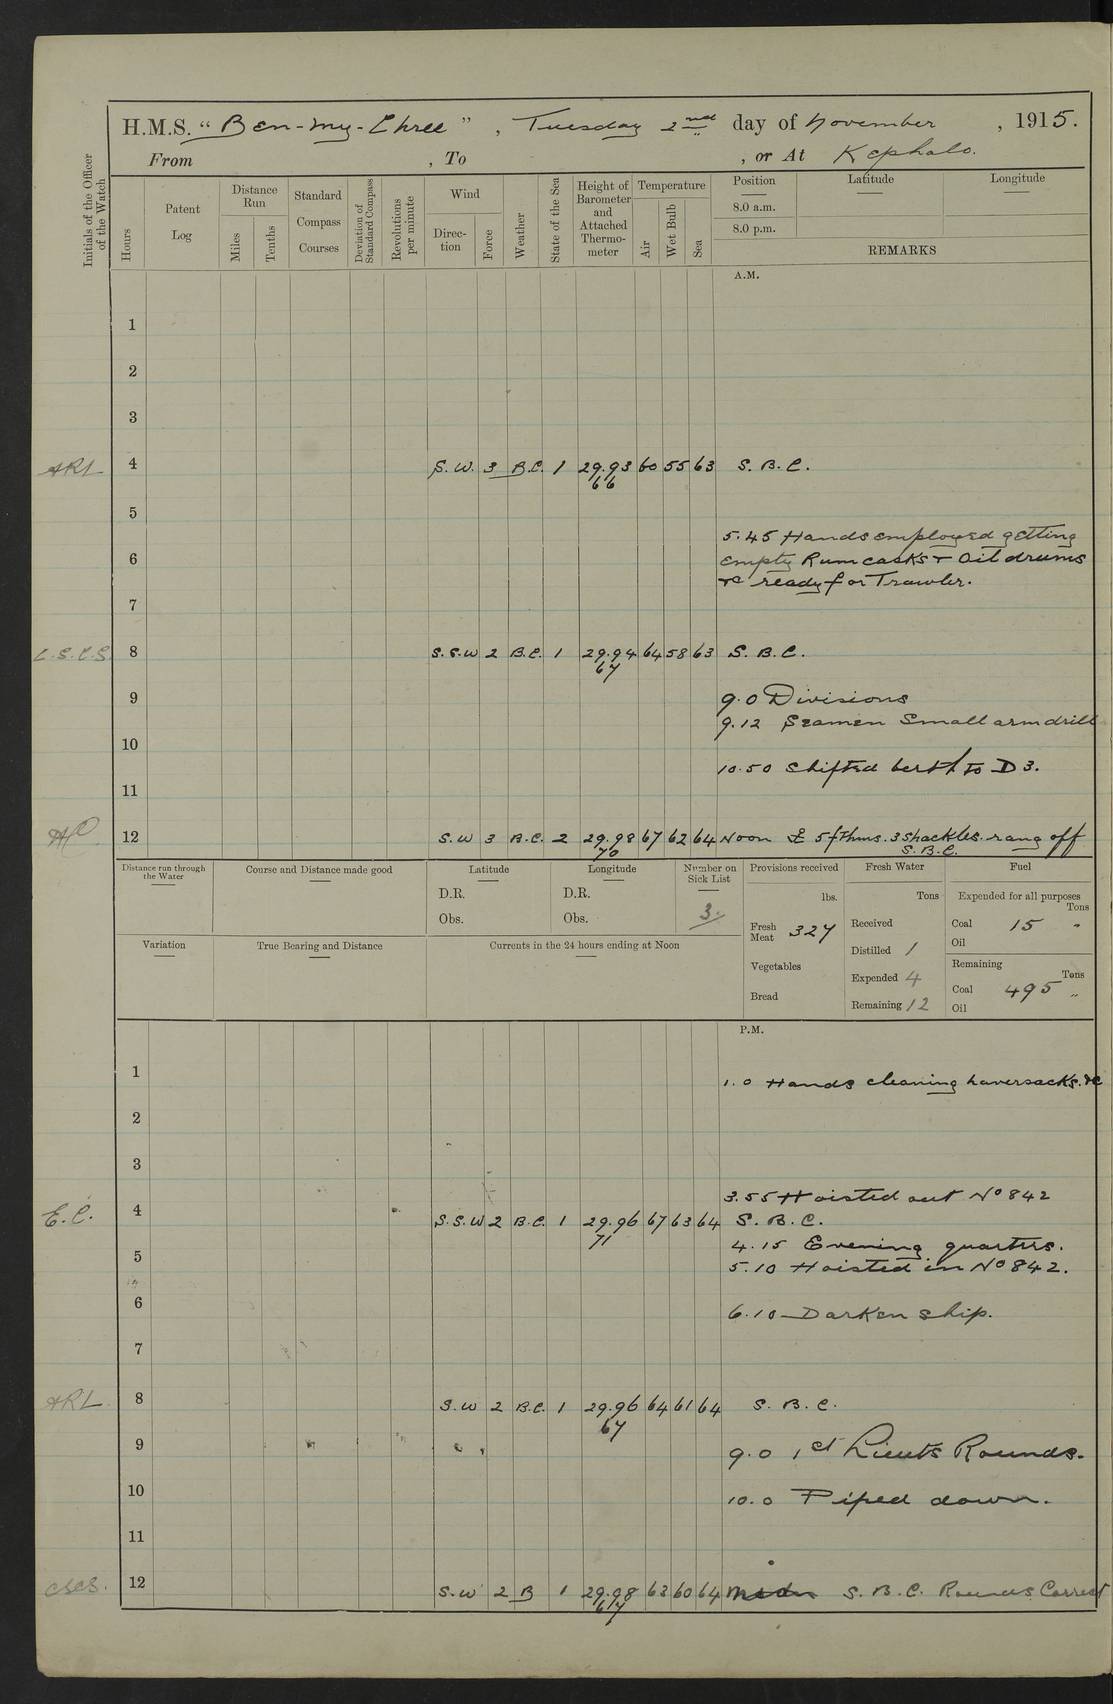 H.M.S. "Ben-my-Chree", Tuesday 2nd day of November, 1915.
From , To , or At Kephalo.
Initials of the Officer of the Watch
Hours
Patent Log
Distance Run
Miles
Tenths
Standard Compass Courses
Deviation of Standard Compass
Revolutions per minute
Wind
Direction
Force
Weather
State of the Sea
Height of Barometer and Attached Thermometer
Temperature
Air
Wet Bulb
Sea
Position Latitude Longitude
8.0 a.m.
8.0 p.m.
REMARKS
A.M.
1
2
3
ARL 4 S.W. 3 B.C. 1 29.93 60 55 63 S.B.C.
66
5
5.45 Hands employed getting
6 empty Rum casks & Oil drums
&c ready for Trawler.
7
C.S.C.S. 8 S.S.W 2 B.C. 1 29.94 64 58 63 S.B.C.
67
9 9.0 Divisions
9.12 Seamen Small arm drill
10
10.50 Shifted berth to D3.
11
12 S.W 3 B.C. 2 29.98 67 62 64 Noon 5 fthms. 3 shackles. rang off
70 S.B.C.
Distance run through the Water
Course and Distance made good
Latitude
D.R.
Obs.
Longitude
D.R.
Obs.
Number on Sick List
3.
Provisions received
lbs.
Fresh Meat 327
Vegetables
Bread
Fresh Water
Tons
Received
Distilled 1
Expended 4
Remaining 12
Fuel
Expended for all purposes
Tons
Coal 15 "
Oil
Remaining
Tons
Coal 495 "
Oil
Variation
True Bearing and Distance
Currents in the 24 hours ending at Noon
P.M.
1 1.0 Hands cleaning haversacks. &c
2
3
3.55 Hoisted out No 842
E.C. 4 S.S.W 2 B.C. 1 29.96 67 63 64 S.B.C.
71
4.15 Evening quarters.
5 5.10 Hoisted in No 842.
6 6.10 Darken ship.
7
ARL 8 S.W 2 B.C. 1 29.96 64 61 64 S.B.C.
67
9 9.0 1st Lieuts Rounds.
10 10.0 Piped down.
11
CSCS. 12 S.W 2 B 1 29.98 63 60 64 S.B.C. Rounds Correct
67